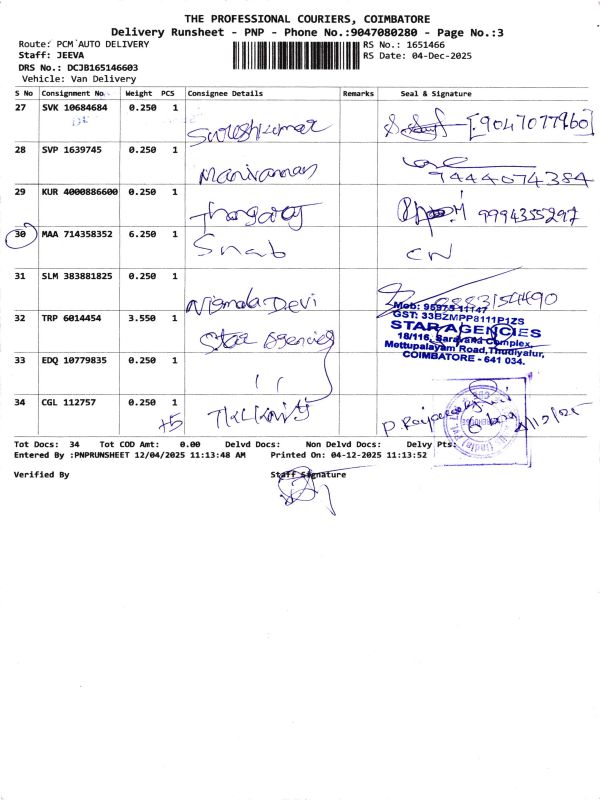 THE PROFESSIONAL COURIERS, COIMBATORE
Delivery Runsheet - PNP - Phone No.:9047080280 - Page No.:3
Route: PCM AUTO DELIVERY
RS No.: 1651466
Staff: JEEVA
RS Date: 04-Dec-2025
DRS No.: DCJB165146603
Vehicle: Van Delivery
S No Consignment No. Weight PCS Consignee Details Remarks Seal & Signature
27 SVK 10684684 0.250 1 Sureshkumar [9047077960]
28 SVP 1639745 0.250 1 Manivannan 9444074384
29 KUR 4000886600 0.250 1 Thangaraj 9994355297
30 MAA 714358352 6.250 1 Snab CN
31 SLM 383881825 0.250 1 Nirmala Devi
32 TRP 6014454 3.550 1 Star Agencies
Mob: 95975 11147
GST: 33BZMPP8111P1ZS
STAR AGENCIES
18/116, Saravana Complex,
Mettupalayam Road, Thudiyalur,
COIMBATORE - 641 034.
33 EDQ 10779835 0.250 1 11
34 CGL 112757 0.250 1 +5
Tot Docs: 34 Tot COD Amt: 0.00 Delvd Docs: Non Delvd Docs: Delvy Pts:
Entered By :PNPRUNSHEET 12/04/2025 11:13:48 AM Printed On: 04-12-2025 11:13:52
Verified By Staff Signature